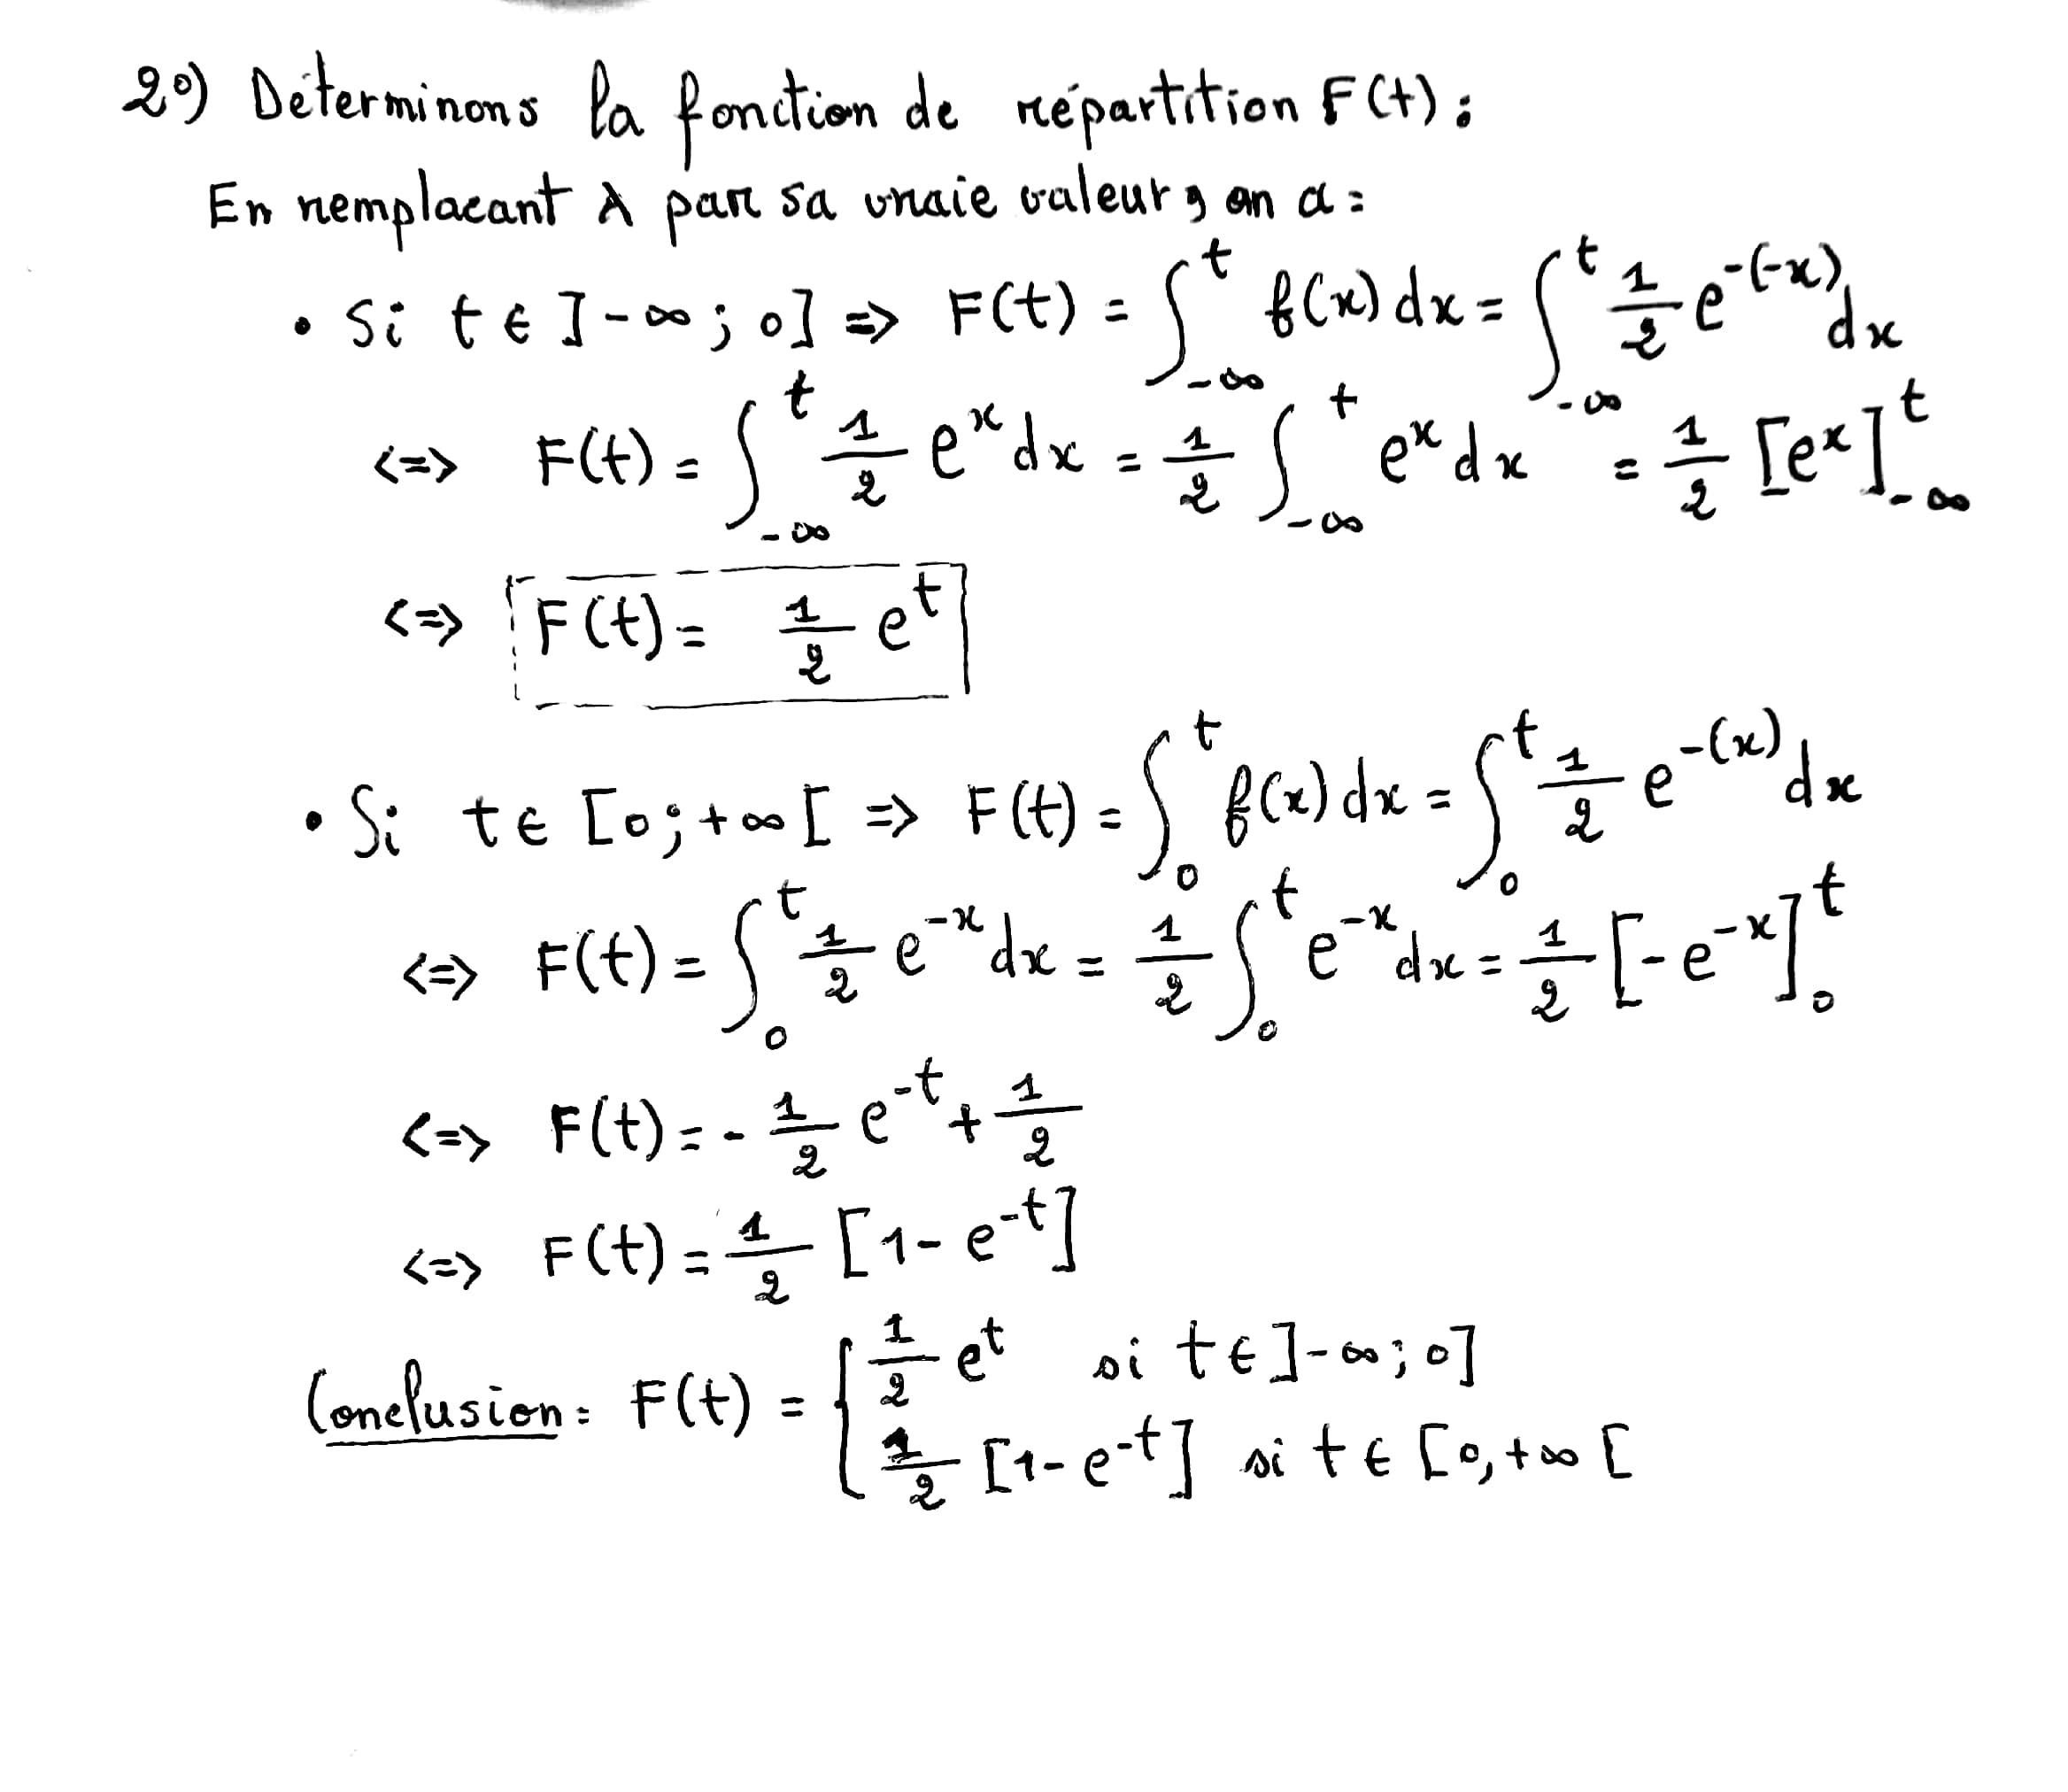 2°) Déterminons la fonction de répartition F(t) :
En remplacant λ par sa vraie valeur, on a :
• Si t ∈ ]-∞ ; 0] => F(t) = ∫_{-∞}^{t} f(x) dx = ∫_{-∞}^{t} 1/2 e^{-(-x)} dx
<=> F(t) = ∫_{-∞}^{t} 1/2 e^x dx = 1/2 ∫_{-∞}^{t} e^x dx = 1/2 [e^x]_{-∞}^{t}
<=> F(t) = 1/2 e^t
• Si t ∈ [0 ; +∞[ => F(t) = ∫_{0}^{t} f(x) dx = ∫_{0}^{t} 1/2 e^{-(x)} dx
<=> F(t) = ∫_{0}^{t} 1/2 e^{-x} dx = 1/2 ∫_{0}^{t} e^{-x} dx = 1/2 [-e^{-x}]_{0}^{t}
<=> F(t) = - 1/2 e^{-t} + 1/2
<=> F(t) = 1/2 [1 - e^{-t}]
Conclusion : F(t) = { 1/2 e^t si t ∈ ]-∞ ; 0]
1/2 [1 - e^{-t}] si t ∈ [0, +∞[